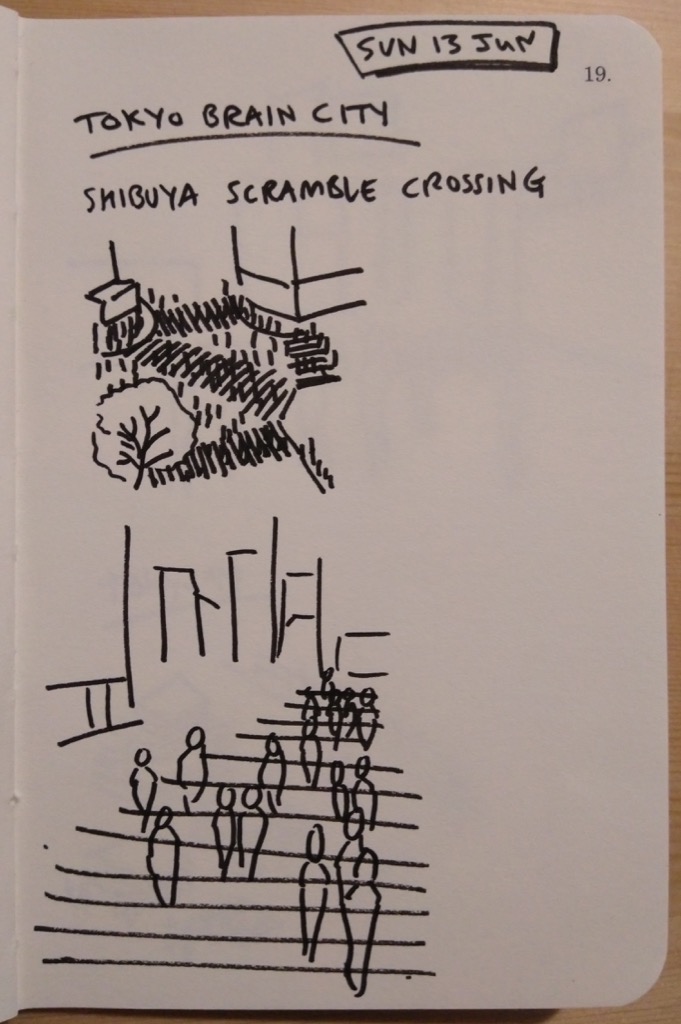 SUN 13 JUN
19.
TOKYO BRAIN CITY
SHIBUYA SCRAMBLE CROSSING